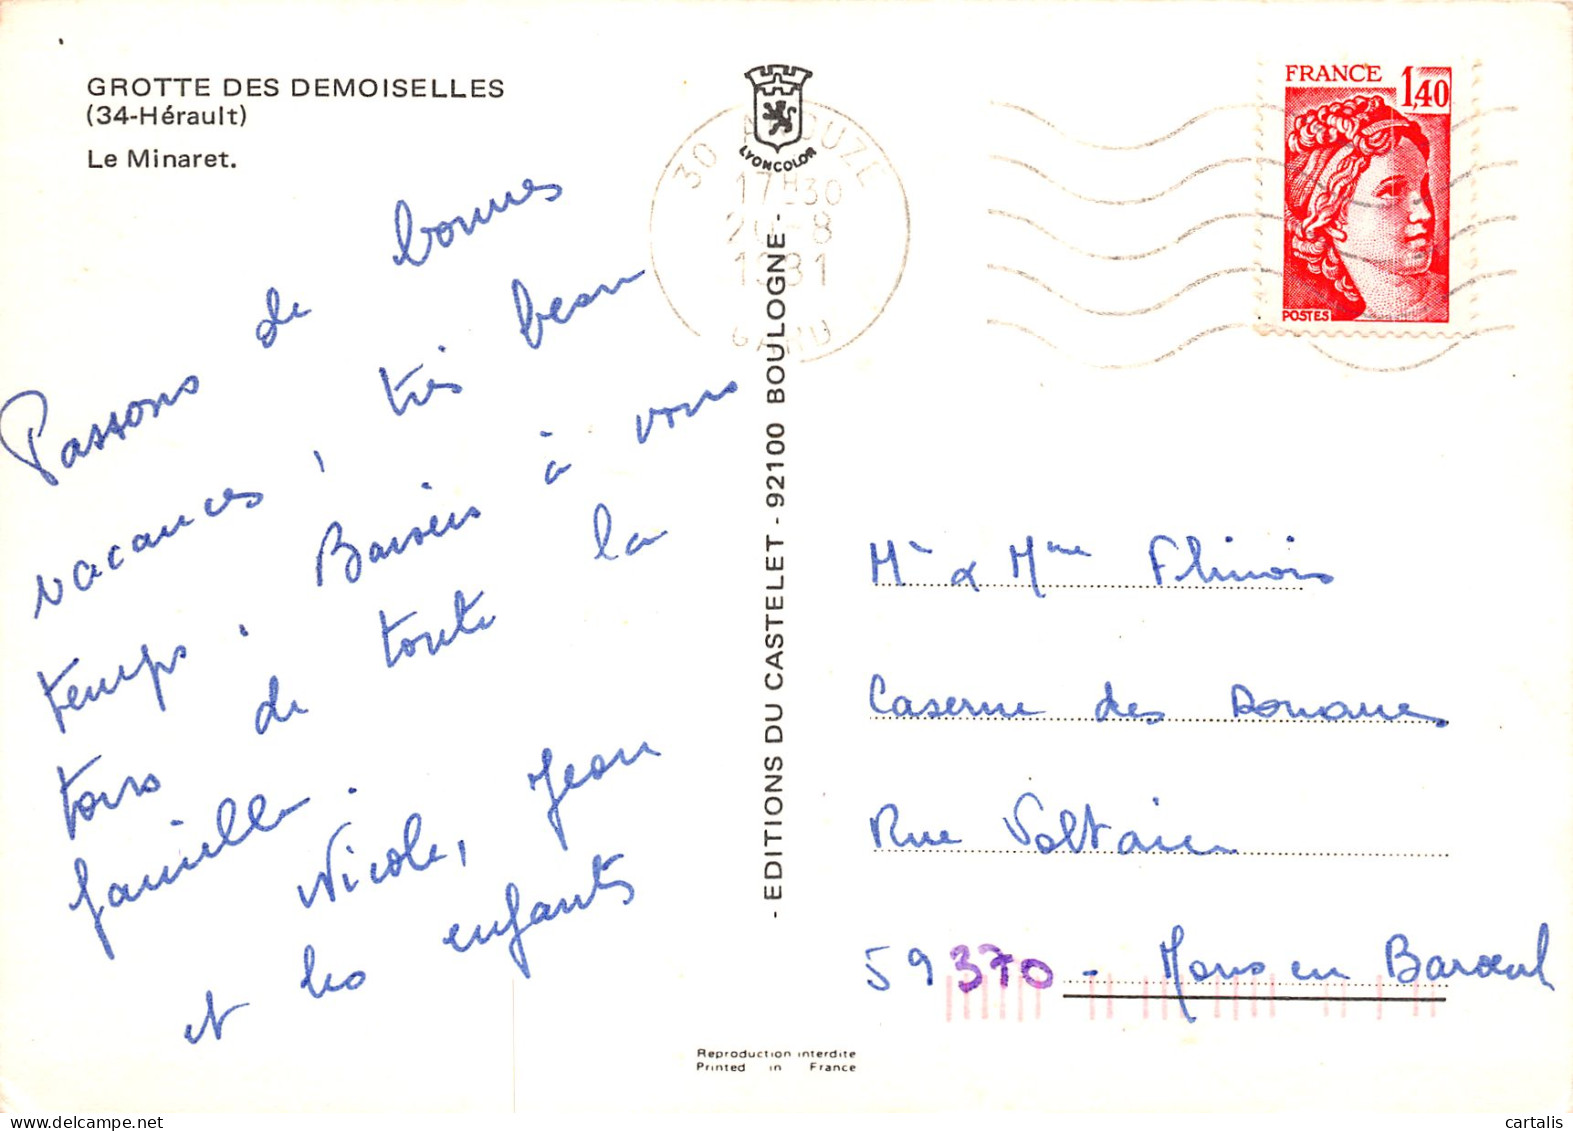 GROTTE DES DEMOISELLES
(34-Hérault)
Le Minaret.
Passons de bonnes
vacances, très beau
temps. Baisers à vous
tous de toute la
famille.
Nicole, Jean
et les enfants
LYONCOLOR
17H30
20-8
1981
- EDITIONS DU CASTELET - 92100 BOULOGNE -
FRANCE
1,40
POSTES
Mr & Mme Flinois
Caserne des Douanes
Rue Voltaire
59370 - Mons en Baroeul
Reproduction interdite
Printed in France
cartalis